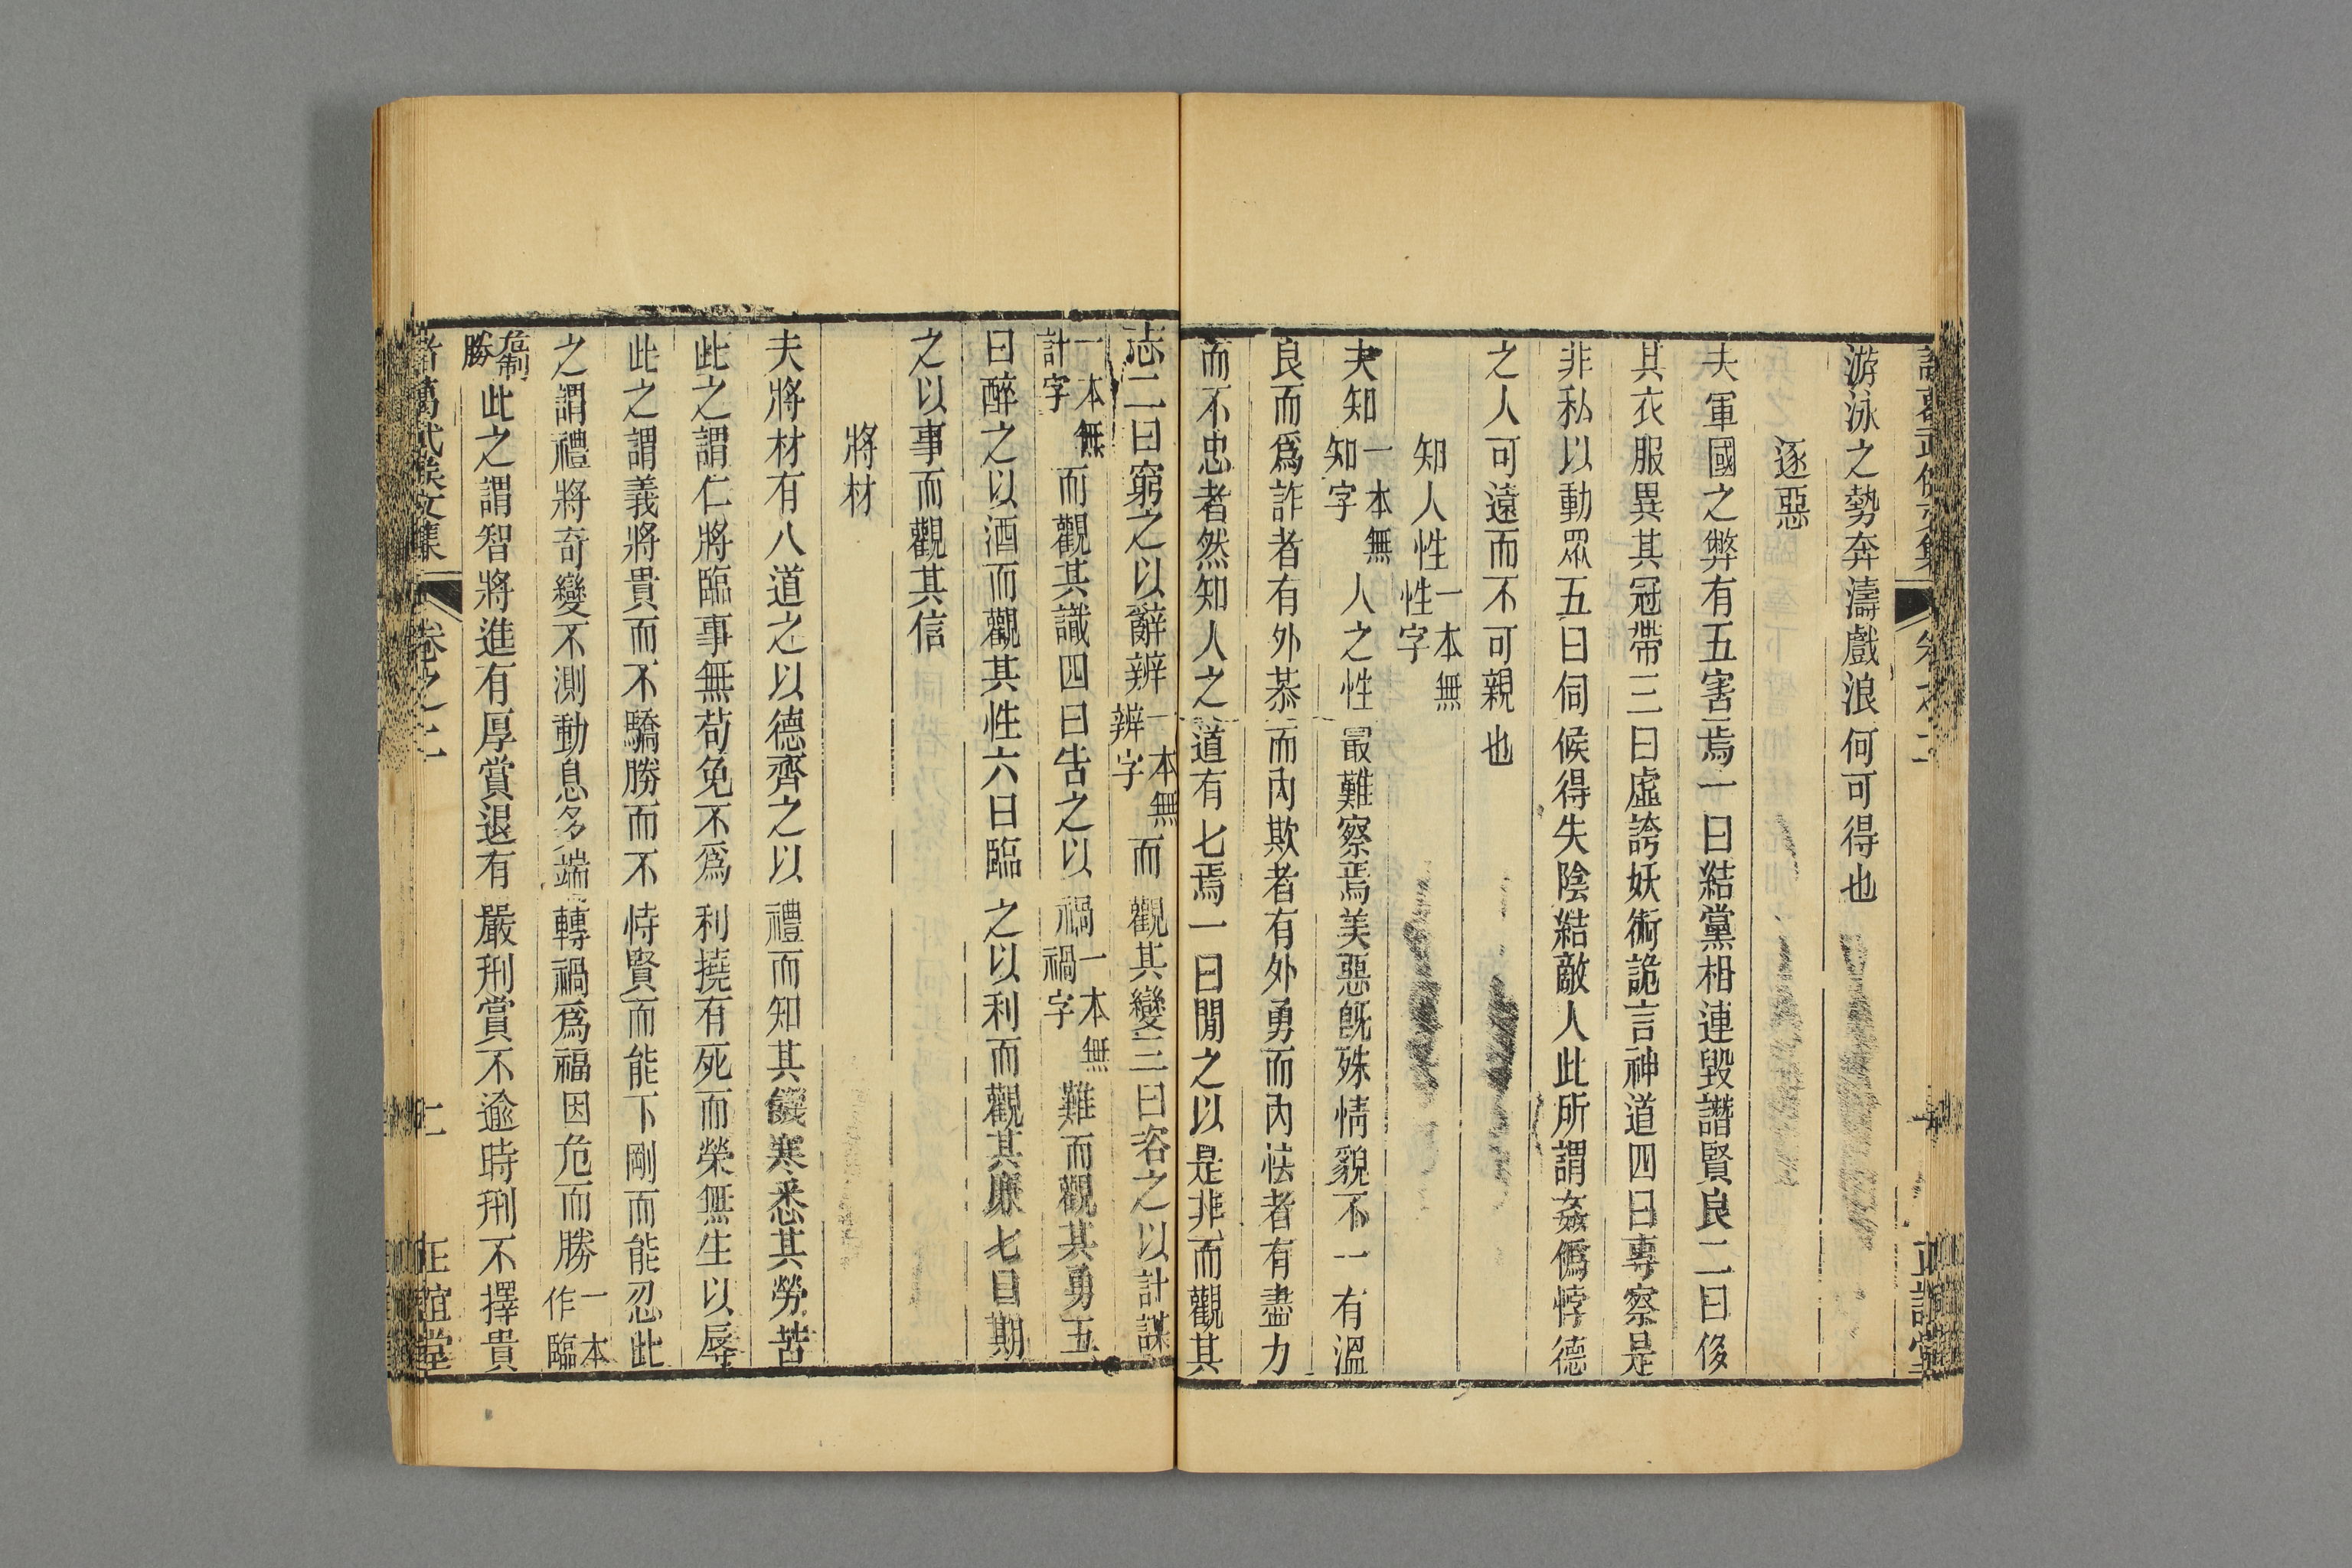 游泳之勢奔濤戲浪何可得也
逐惡
夫軍國之弊有五害焉一曰結黨相連毀譖賢良二曰侈
其衣服異其冠帶三曰虛誇妖術詭言神道四曰專察是
非私以動眾五曰伺候得失陰結敵人此所謂姦僞悖德
之人可遠而不可親也
知人性一本無性字
夫知一本無知字人之性最難察焉美惡旣殊情貌不一有溫
良而爲詐者有外恭而內欺者有外勇而內怯者有盡力
而不忠者然知人之道有七焉一曰閒之以是非而觀其
志二曰窮之以辭辨一本無辨字而觀其變三曰咨之以計謀
一本無計字而觀其識四曰告之以禍一本無禍字難而觀其勇五
曰醉之以酒而觀其性六曰臨之以利而觀其廉七曰期
之以事而觀其信
將材
夫將材有八道之以德齊之以禮而知其饑寒悉其勞苦
此之謂仁將臨事無苟免不爲利撓有死而榮無生以辱
此之謂義將貴而不驕勝而不恃賢而能下剛而能忍此
之謂禮將奇變不測動息多端轉禍爲福因危而勝一本作臨
危制勝此之謂智將進有厚賞退有嚴刑賞不逾時刑不擇貴
諸葛武侯文集 卷之二 二 正誼堂